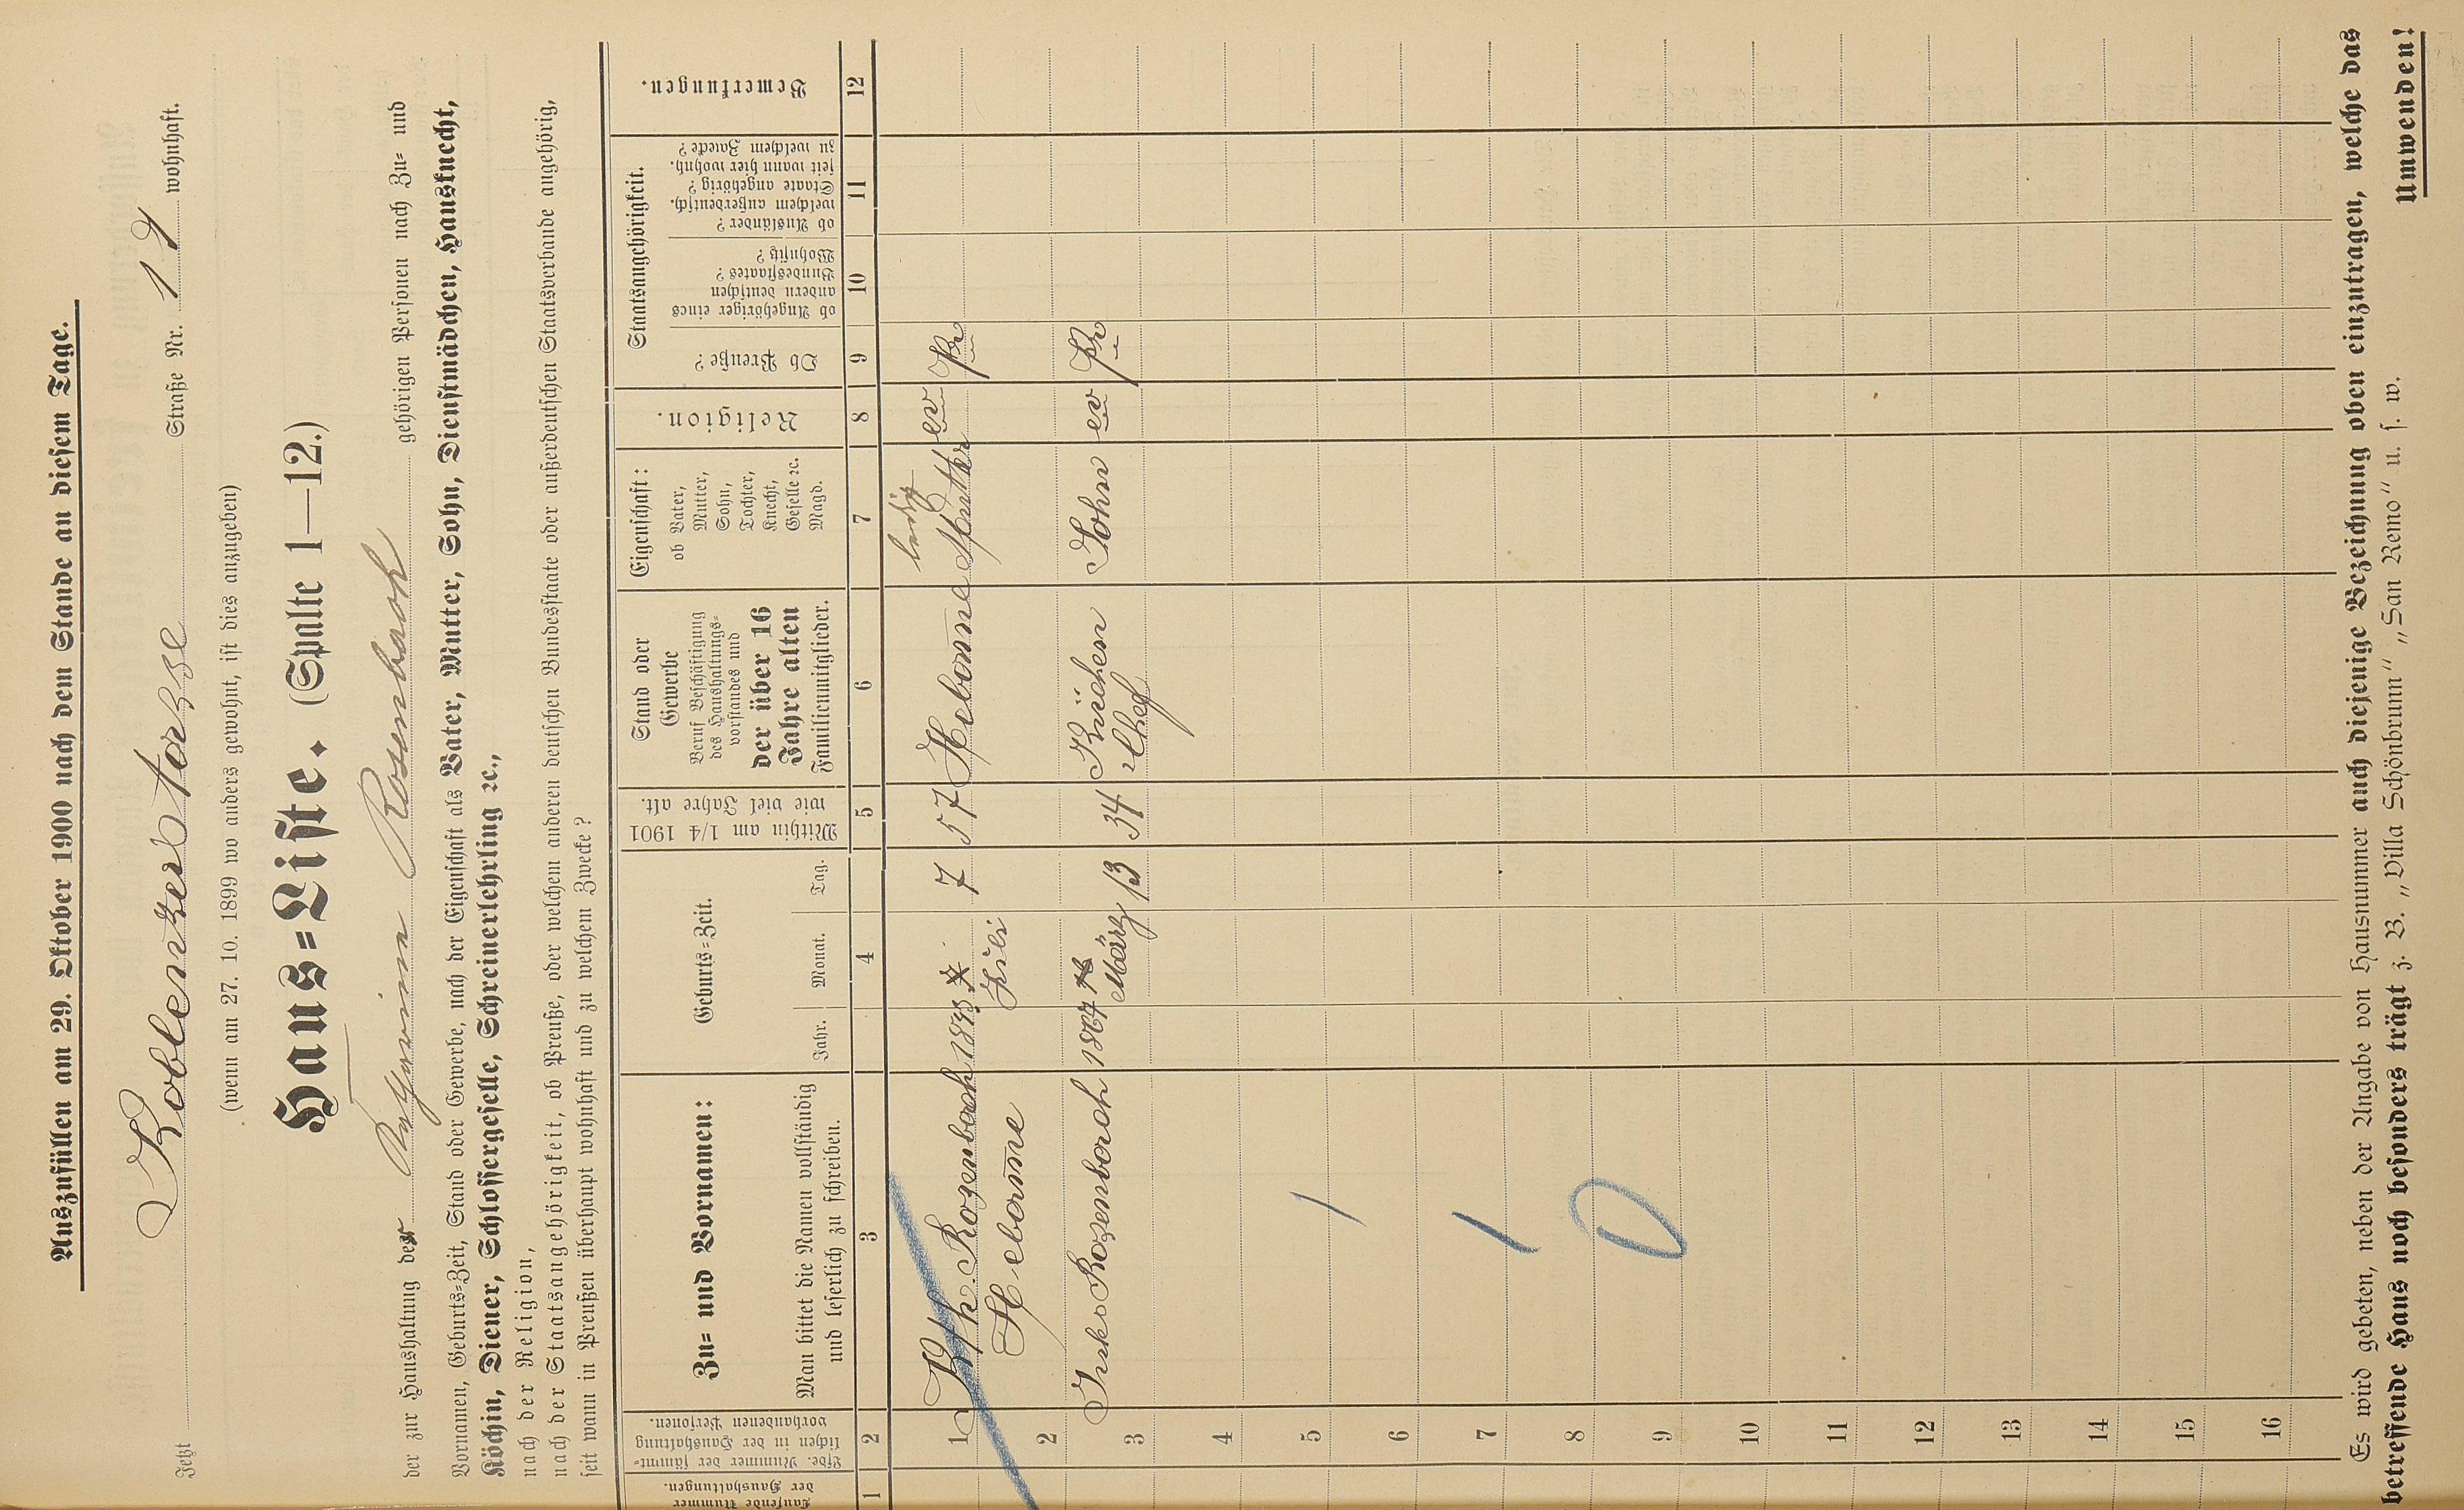 Auszufüllen am 29. Oktober 1900 nach dem Stande an diesem Tage.
Jetzt Koblenzerstorzse Straße Nr. 1 wohnhaft.
(wenn am 27. 10. 1899 wo anders gewohnt, ist dies anzugeben)
Haus=Liste. (Spalte 1—12.)
der zur Haushaltung der Rosenbach gehörigen Personen nach Zu= und
Vornamen, Geburts=Zeit, Stand oder Gewerbe, nach der Eigenschaft als Vater, Mutter, Sohn, Dienstmädchen, Hausknecht,
Köchin, Diener, Schlossergeselle, Schreinerlehrling ꝛc.,
nach der Religion,
nach der Staatsangehörigkeit, ob Preuße, oder welchem anderen deutschen Bundesstaate oder außerdeutschen Staatsverbande angehörig,
seit wann in Preußen überhaupt wohnhaft und zu welchem Zwecke?
Laufende Nummer
der Haushaltungen.
Lfde. Nummer der sämmt=
lichen in der Haushaltung
vorhandenen Personen.
Zu= und Vornamen:
Man bittet die Namen vollständig
und leserlich zu schreiben.
Geburts=Zeit.
Jahr. Monat. Tag.
Mithin am 1/4 1901
wie viel Jahre alt.
Stand oder
Gewerbe
Beruf Beschäftigung
des Haushaltungs=
vorstandes und
der über 16
Jahre alten
Familienmitglieder.
Eigenschaft:
ob Vater,
Mutter,
Sohn,
Tochter,
Knecht,
Geselle ꝛc.
Magd.
Religion.
Staatsangehörigkeit.
Ob Preuße?
ob Angehöriger eines
andern deutschen
Bundesstaates?
Wohnsitz?
ob Ausländer?
welchem außerdeutsch.
Staate angehörig?
seit wann hier wohnh.
zu welchem Zwecke?
Bemerkungen.
1 2 3 4 5 6 7 8 9 10 11 12
ledig
1 Kth. Rosenbach 1843 7 57 Hebamme Mutter ev Pr
Hebamme Juli
2 Rosenbach 1867 13 34 Küchen Sohn ev Pr
März Chef
3
4
5
6
7
8
9
10
11
12
13
14
15
16
Es wird gebeten, neben der Angabe von Hausnummer auch diejenige Bezeichnung oben einzutragen, welche das
betreffende Haus noch besonders trägt z. B. „Villa Schönbrunn" „San Remo" u. s. w.
Umwenden!